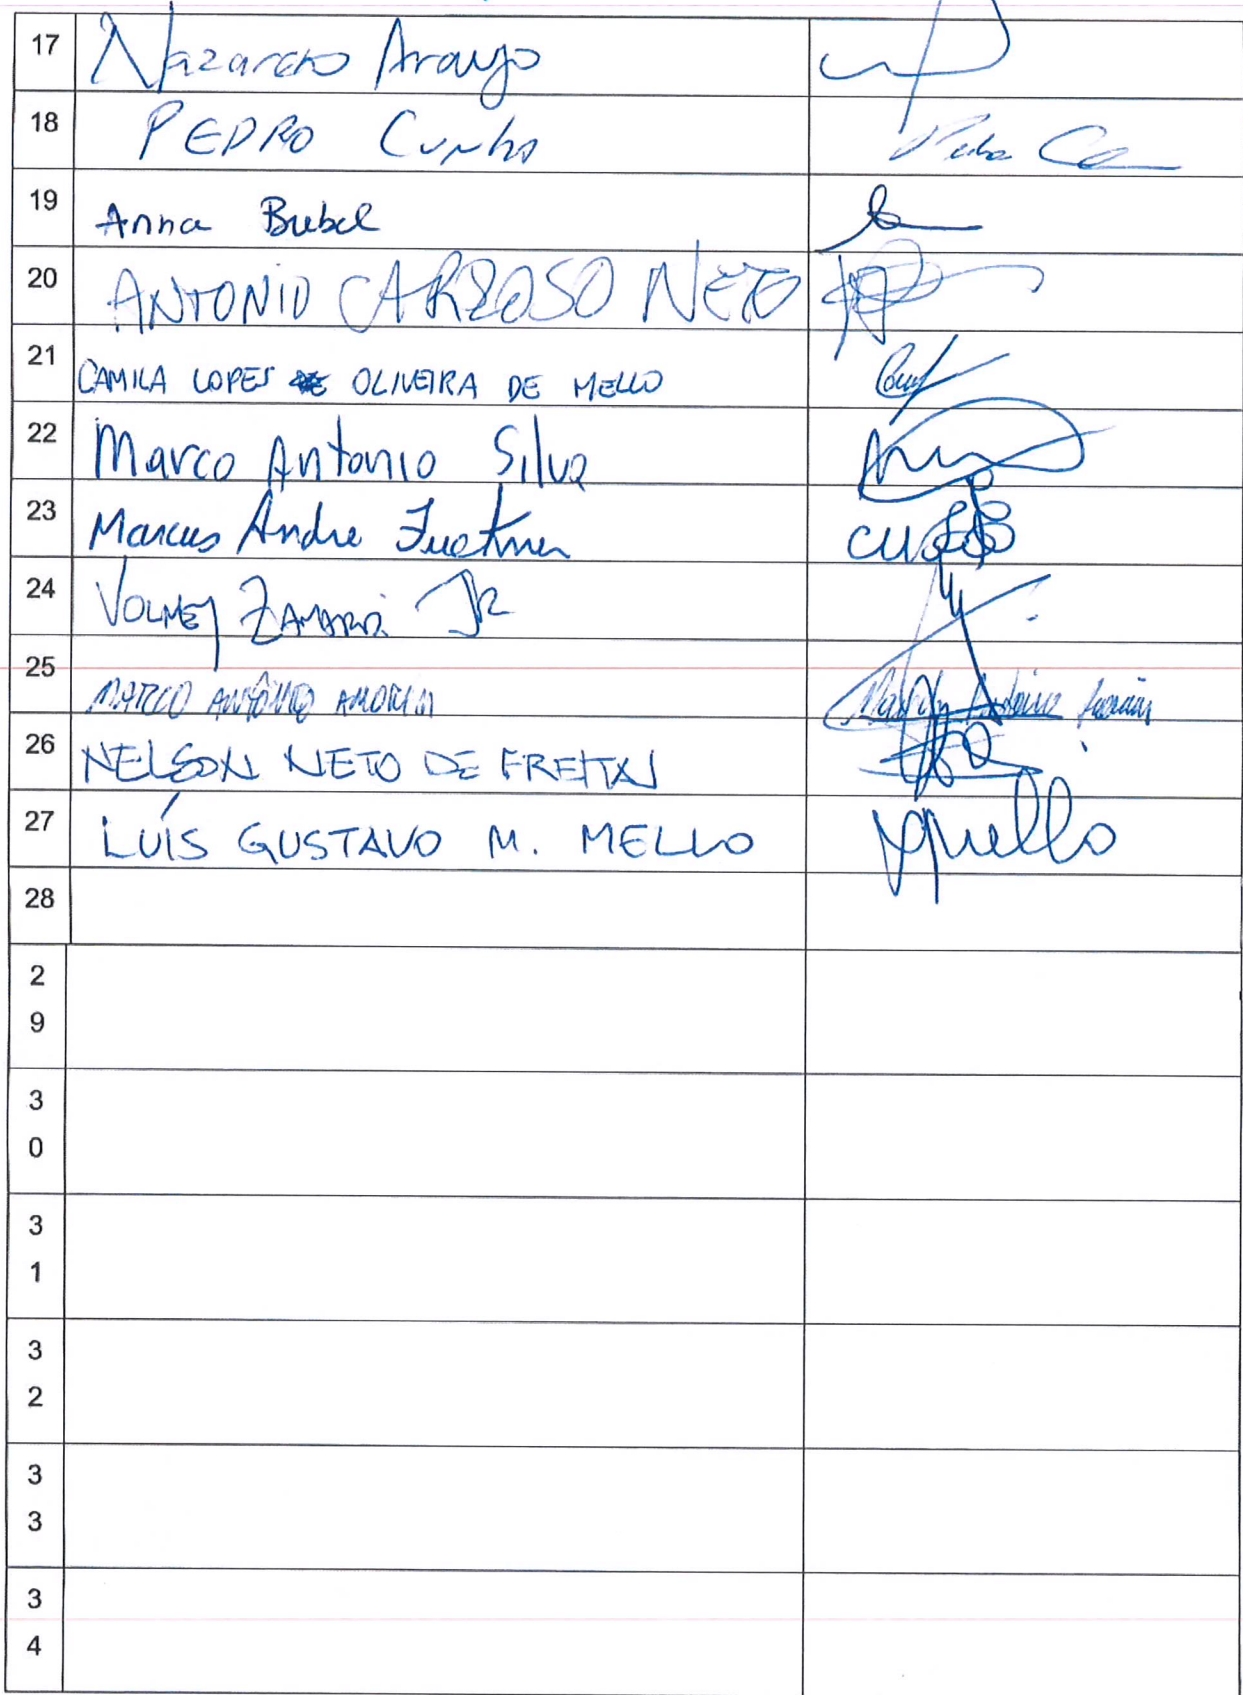 17 Nazareno Araujo
18 PEDRO Cunha
19 Anna Bubel
20 ANTONIO CARDOSO NETO
21 CAMILA LOPES DE OLIVEIRA DE MELLO
22 Marco Antonio Silva
23 Marcus Andre
24 VOLNEY JR
25 MARCO ANTÔNIO AMORIM
26 NELSON NETO DE FREITAS
27 LUÍS GUSTAVO M. MELLO Mello
28
2
9
3
0
3
1
3
2
3
3
3
4